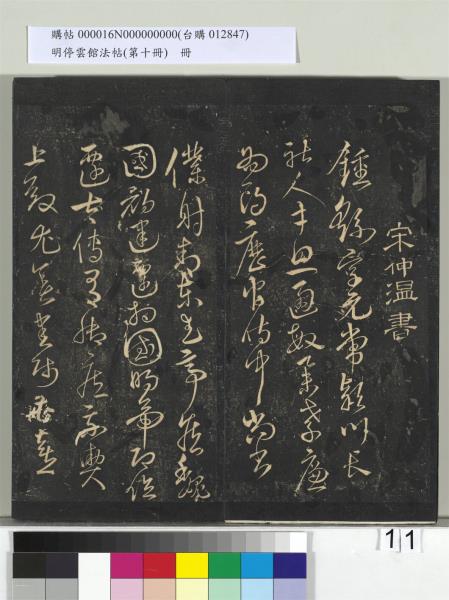 購帖 000016N000000000(台購 012847)
明停雲館法帖(第十冊)　冊
宋仲温書
鍾繇字元常潁川長
社人才思通敏舉孝廉
為 歷官侍中尚書
僕射封東武亭侯魏
國初建遷相國明帝即位
遷太傅
尤善書師曹喜
11